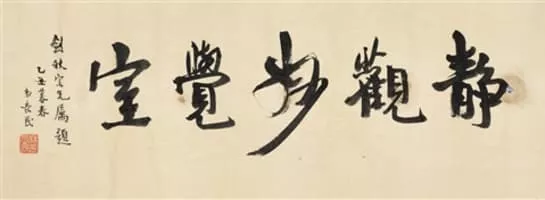 靜觀妙覺室
劍秋宗兄屬題
乙丑暮春
弟長民